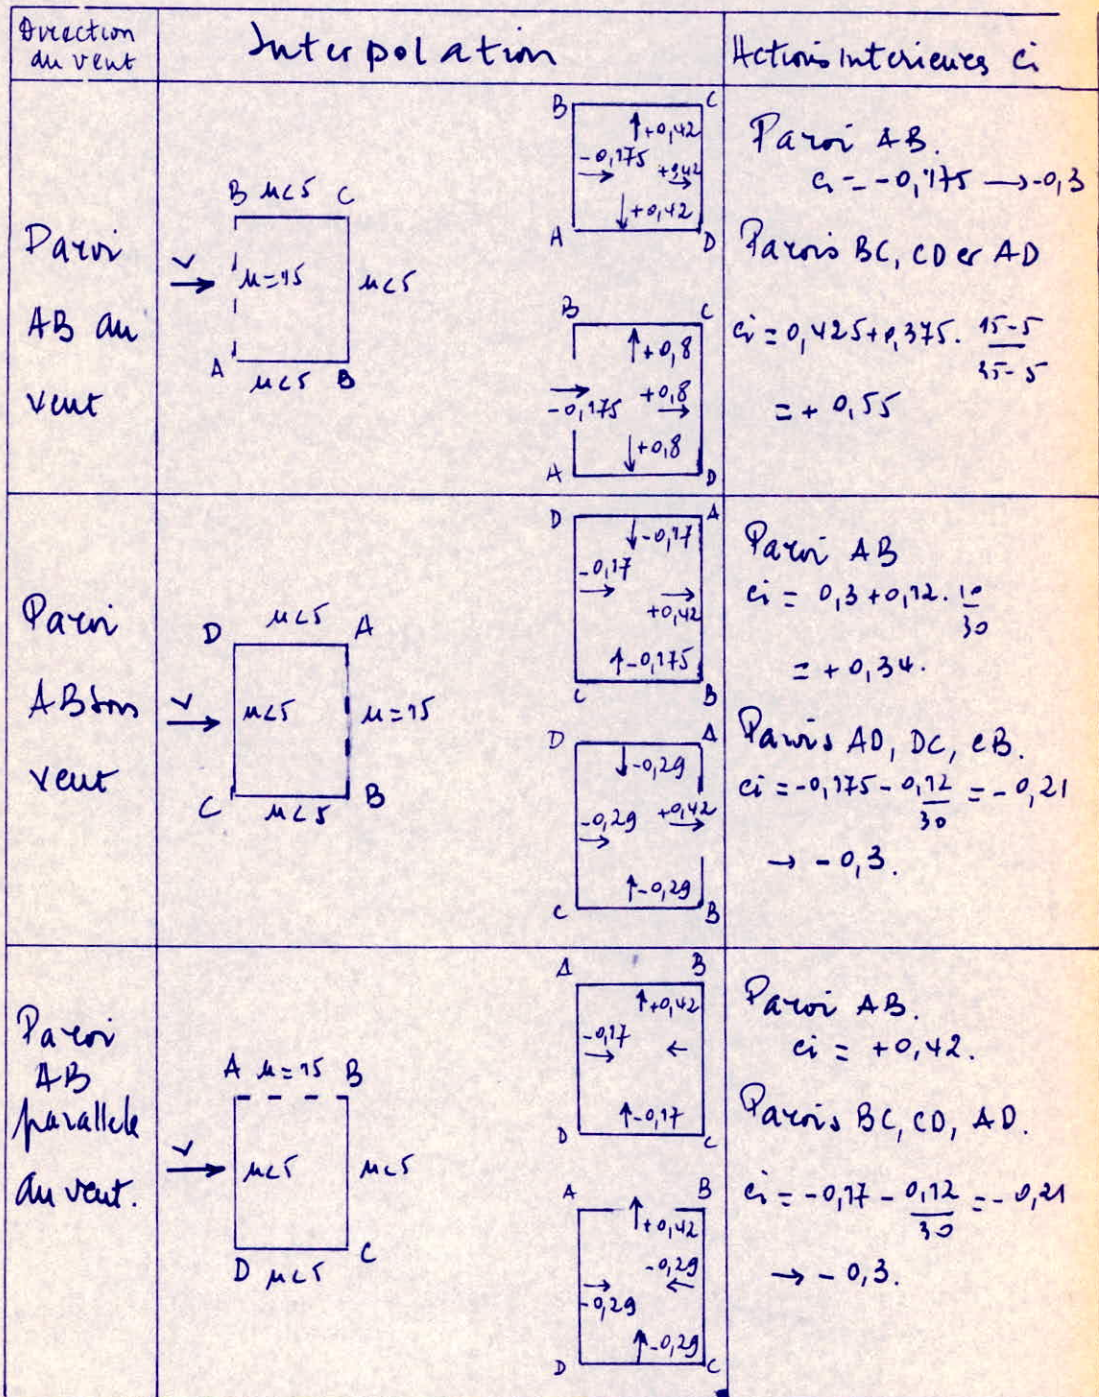 Direction
du vent
Interpolation
Actions Interieures ci
Paroi
AB au
vent
B μ<5 C
V
μ=15
μ<5
A μ<5 B
B C
+0,42
-0,175
+0,42
+0,42
A D
B C
+0,8
+0,8
-0,175
+0,8
A D
Paroi AB.
ci = -0,175 → -0,3
Parois BC, CD et AD
ci = 0,425+0,375. 15-5
35-5
= + 0,55
Paroi
AB sous
vent
μ<5
D A
V
μ<5
μ=15
C μ<5 B
D A
-0,17
-0,17
+0,42
-0,175
C B
D A
-0,29
-0,29 +0,42
-0,29
C B
Paroi AB
ci = 0,3+0,12. 10
30
= + 0,34.
Parois AD, DC, CB.
ci = -0,175 - 0,12 = -0,21
30
→ -0,3.
Paroi
AB
parallele
au vent.
A μ=15 B
V
μ<5
μ<5
D μ<5 C
A B
+0,42
-0,17
-0,17
D C
A B
+0,42
-0,29
-0,29
-0,29
D C
Paroi AB.
ci = +0,42.
Parois BC, CD, AD.
ci = -0,17 - 0,12 = -0,21
30
→ -0,3.